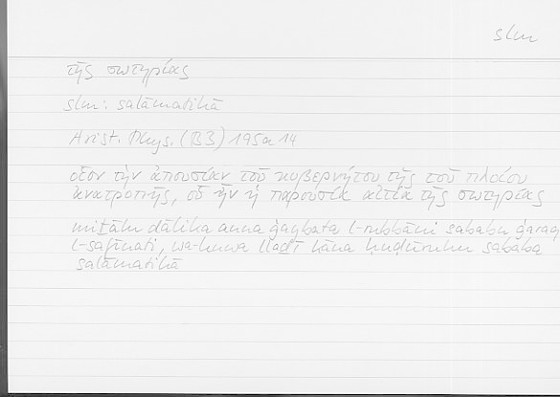 slm
τῆς σωτηρίας
slm: salāmatihā
Arist. Phys. (B3) 195a 14
οἷον τὴν ἀπουσίαν τοῦ κυβερνήτου τῆς τοῦ πλοίου
ἀνατροπῆς, οὗ ἦν ἡ παρουσία αἰτία τῆς σωτηρίας
miṯālu ḏālika anna ġaybata l-rubbāni sababu ġaraq
l-safīnati, wa-huwa llaḏī kāna ḥuḍūruhu sababa
salāmatihā